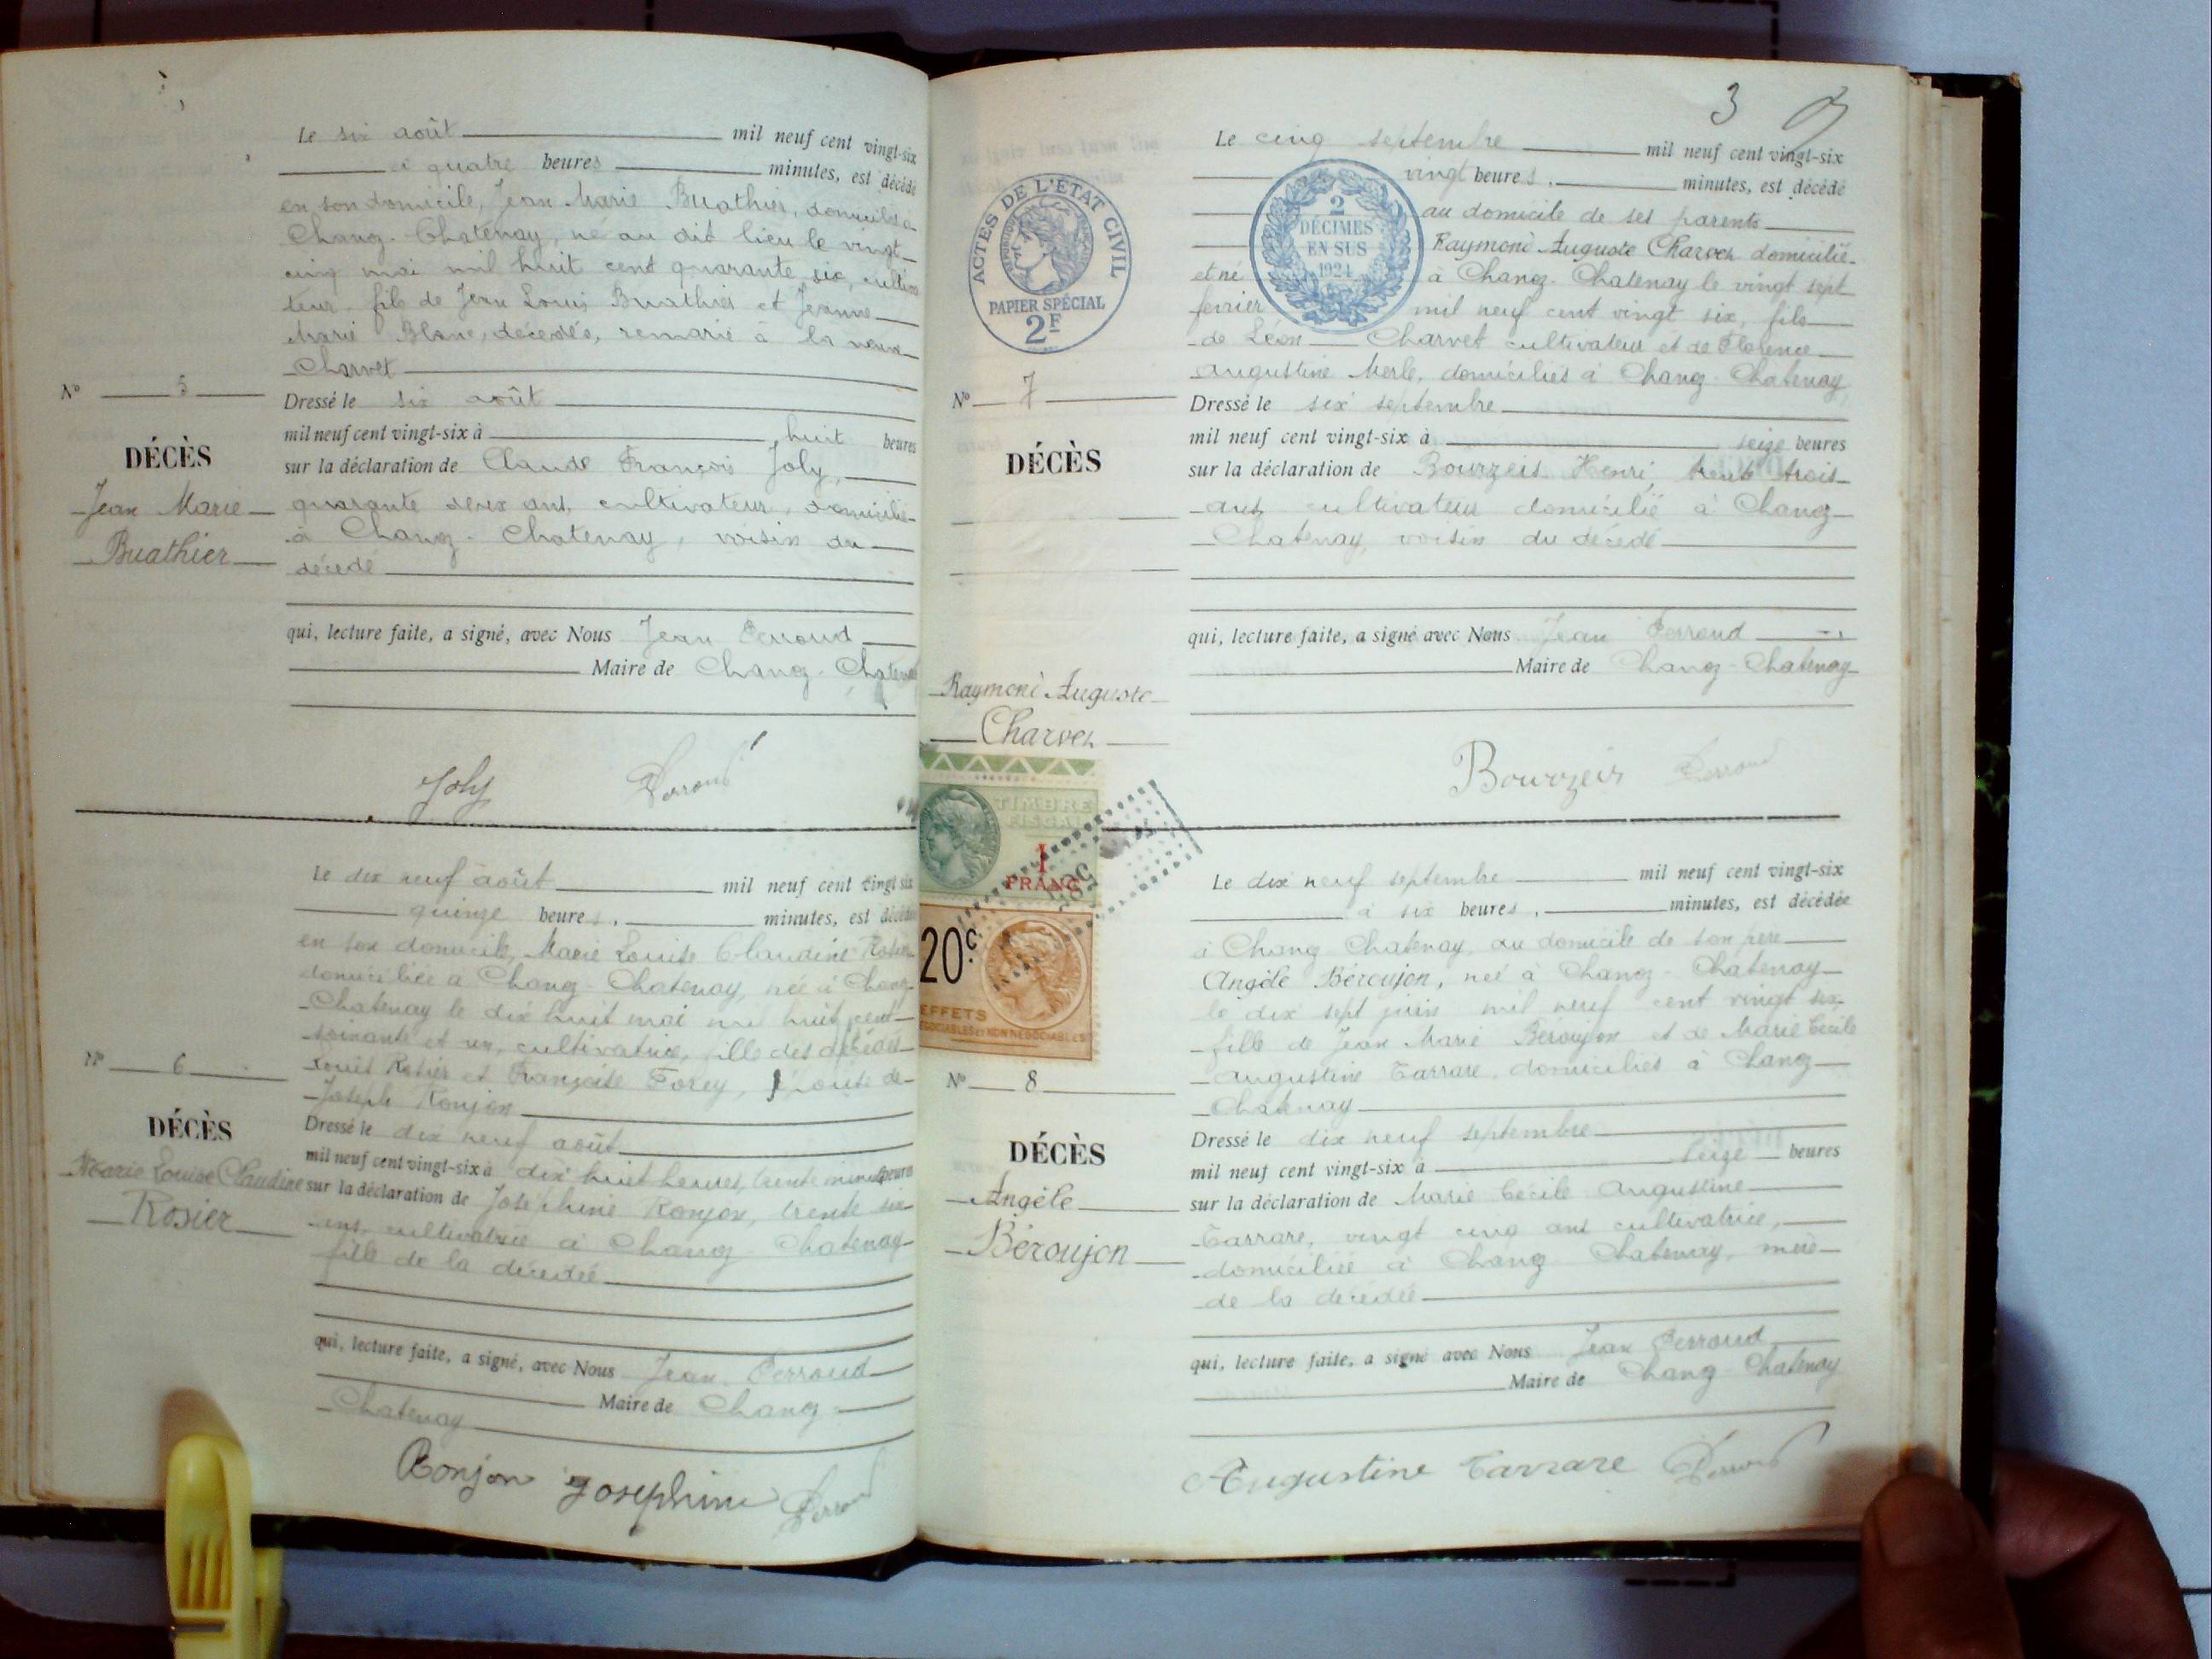 Le six août mil neuf cent vingt-six
à quatre heures minutes, est décédé
en son domicile, Jean Marie Buathier, domicilié à
Chanoz-Chatenay, né au dit lieu le vingt
cinq mai mil huit cent quarante six, cultiva
teur, fils de Jean Louis Buathier et Jeanne
Marie Blanc, décédés, remarié à la veuve
Charvet
N° 5
Dressé le six août
mil neuf cent vingt-six à huit heures
DÉCÈS
sur la déclaration de Claude François Joly,
Jean Marie
quarante deux ans, cultivateur, domicilié
à Chanoz-Chatenay, voisin du
Buathier
décédé
qui, lecture faite, a signé, avec Nous Jean Perroud
Maire de Chanoz-Chatenay
Joly Perroud
Le dix neuf août mil neuf cent vingt six
quinze heures, minutes, est décédée
en son domicile, Marie Louise Claudine Rosier
domiciliée à Chanoz-Chatenay, née à Chanoz
Chatenay le dix huit mai mil huit cent
soixante et un, cultivatrice, fille des décédés
Louis Rosier et Françoise Forey, épouse de
N° 6
Joseph Ronjon
Dressé le dix neuf août
DÉCÈS
mil neuf cent vingt-six à dix huit heures, trente minutes heures
Marie Louise Claudine
sur la déclaration de Joséphine Ronjon, trente six
Rosier
ans, cultivatrice à Chanoz-Chatenay
fille de la décédée
qui, lecture faite, a signé, avec Nous Jean Perroud
Maire de Chanoz
Chatenay
Ronjon Josephine Perroud
3
Le cinq septembre mil neuf cent vingt-six
vingt heures, minutes, est décédé
au domicile de ses parents
Raymond Auguste Charvet domicilié
et né à Chanoz-Chatenay le vingt sept
fevrier mil neuf cent vingt six, fils
de Léon Charvet cultivateur et de Florence
Augustine Merle, domiciliés à Chanoz-Chatenay
ACTES DE L'ÉTAT CIVIL
PAPIER SPÉCIAL
2F
2
DÉCIMES
EN SUS
1924
N° 7
Dressé le six septembre
mil neuf cent vingt-six à seize heures
DÉCÈS
sur la déclaration de Bourzeis Henri, trente trois
ans cultivateur domicilié à Chanoz
Chatenay, voisin du décédé
qui, lecture faite, a signé avec Nous Jean Perroud
Maire de Chanoz-Chatenay
Raymond Auguste
Charvet
Bourzeis Perroud
TIMBRE
FISCAL
1
FRANC
20c
EFFETS
NÉGOCIABLES ET NON NÉGOCIABLES
Le dix neuf septembre mil neuf cent vingt-six
à six heures, minutes, est décédée
à Chanoz Chatenay, au domicile de son père
Angèle Béroujon, née à Chanoz-Chatenay
le dix sept juin mil neuf cent vingt six
fille de Jean Marie Béroujon et de Marie Cécile
Augustine Tarrare, domiciliés à Chanoz
Chatenay
N° 8
Dressé le dix neuf septembre
DÉCÈS
mil neuf cent vingt-six à seize heures
Angèle
sur la déclaration de Marie Cécile Augustine
Béroujon
Tarrare, vingt cinq ans cultivatrice,
domiciliée à Chanoz Chatenay, mère
de la décédée
qui, lecture faite, a signé avec Nous Jean Perroud
Maire de Chanoz Chatenay
Augustine Tarrare Perroud